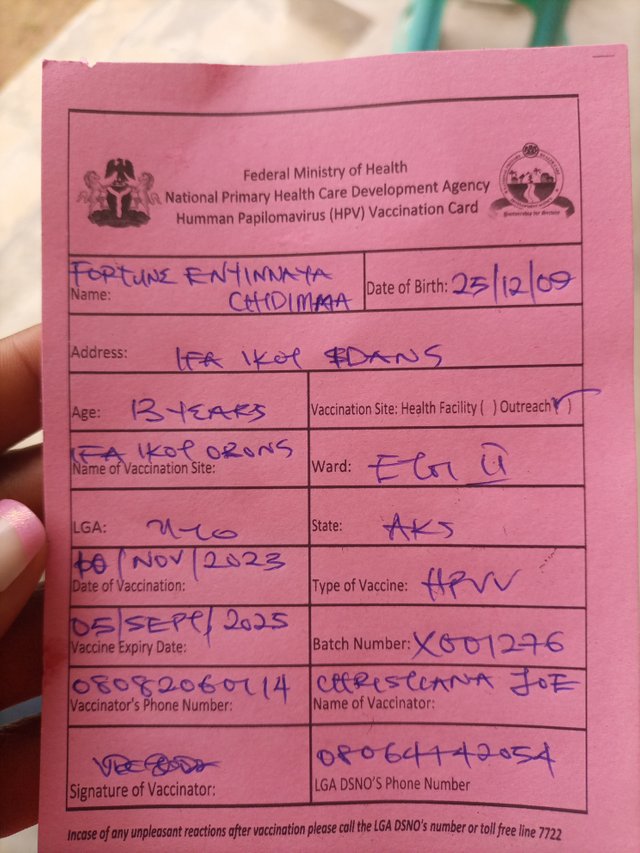 Federal Ministry of Health
National Primary Health Care Development Agency
Humman Papilomavirus (HPV) Vaccination Card
FORTUNE ENYINNAYA
Name: CHIDIMMA
Date of Birth: 25/12/09
Address: IFA IKOT
Age: 13 YEARS
Vaccination Site: Health Facility ( ) Outreach (✓)
IFA IKOT
Name of Vaccination Site:
Ward:
LGA: UYO
State: AKS
10/NOV/2023
Date of Vaccination:
Type of Vaccine: HPVV
05/SEPT/2025
Vaccine Expiry Date:
Batch Number: X001276
Vaccinator's Phone Number:
JOE
Name of Vaccinator:
Signature of Vaccinator:
LGA DSNO'S Phone Number
Incase of any unpleasant reactions after vaccination please call the LGA DSNO's number or toll free line 7722